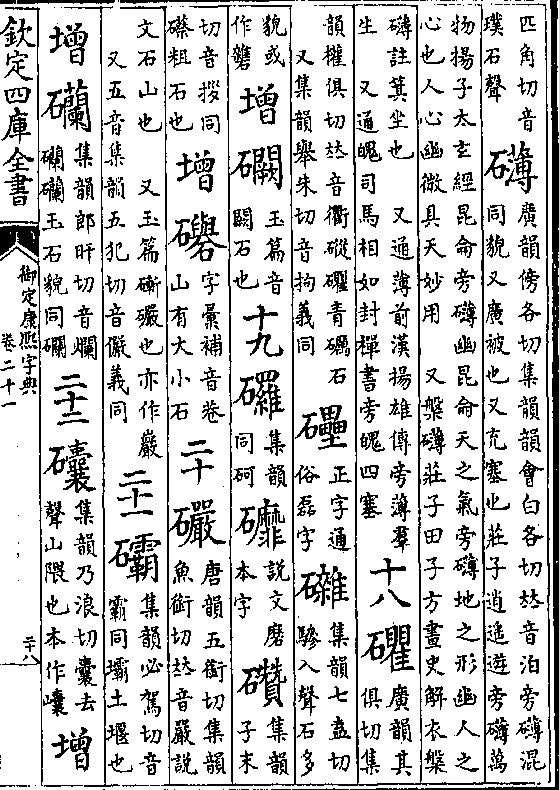 匹角切音璞石聲 礴 廣韻傍各切集韻韻會白各切𠀤音泊旁礴混同貌又廣被也又充塞也莊子逍遙遊旁礴萬
物揚子太玄經昆侖旁礴幽昆侖天之氣旁礴地之形幽人之心也人心幽微具天妙用 又槃礴莊子田子方畫史解衣槃
礴註箕坐也 又通薄前漢揚雄傳旁薄羣生 又通魄司馬相如封禪書旁魄四塞 十八 礭 廣韻其俱切集
韻權俱切𠀤音衢礭青礪石 又集韻舉朱切音拘義同 礨 正字通俗磊字 䃰 集韻七盍切驂入聲石多
貌或作礸 增 䦨 玉篇音闕石也 十九 䃽 集韻同砢 䃺 說文磨本字 礸 集韻子末
切音拶同礤粗石也 增 礜 字彙補音卷山有大小石 二十 礹 唐韻五銜切集韻魚銜切𠀤音嚴說
文石山也 又玉篇嶄礹也亦作巖 又五音集韻五犯切音儼義同 二十一 䃻 集韻必駕切音霸同壩土堰也
增 礀 集韻郎旰切音爛礀礀玉石貌同瓓 二十二 𥗿 集韻乃浪切囊去聲山隈也本作㠢 增
欽定四庫全書
御定康熙字典
卷二十一
二十八